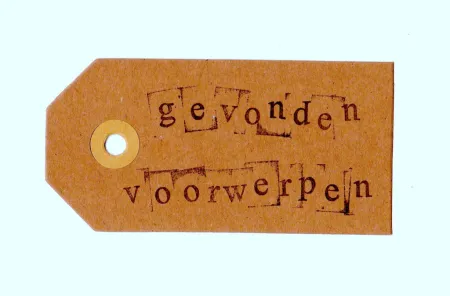 gevonden
voorwerpen